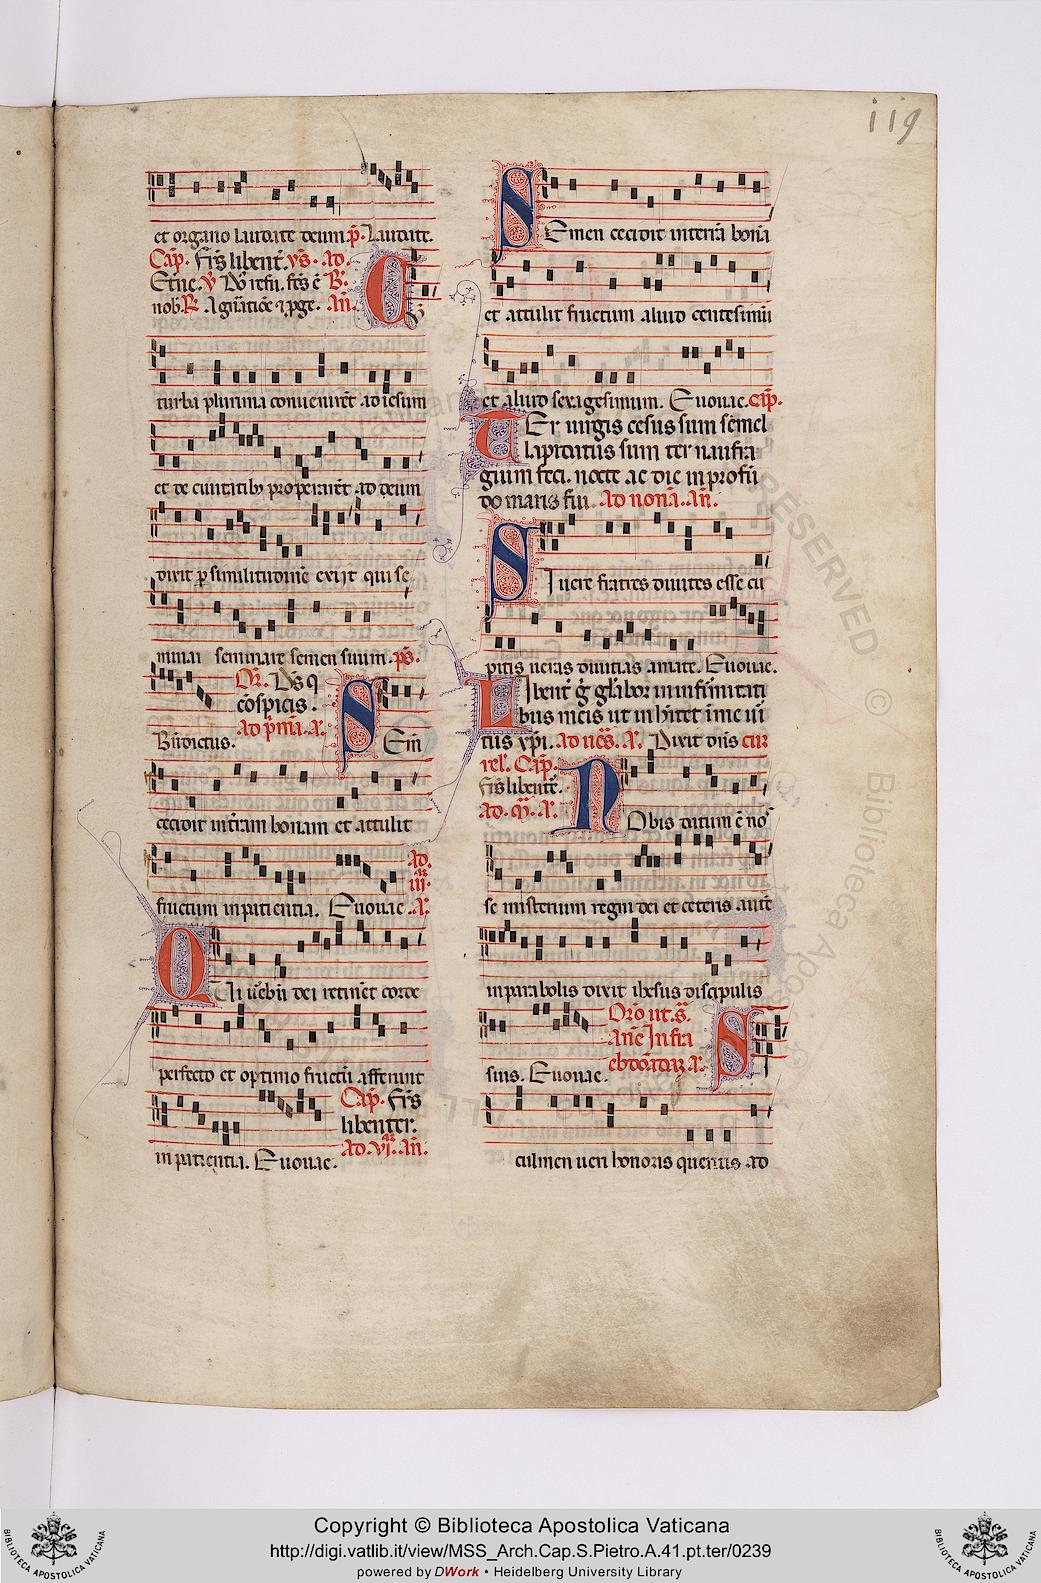 119
et organo laudate deum. p̄. Laudate.
Cap̄. Fr̄s libent̄. ꝟs. Ad
nob. R̄. Agnitiōe ⁊ p̄ge. An̄. C
turba plurima conuenirēt ad iesum
et de ciuitatibꝫ properarēt ad deum
dixit ꝑ similitudinē exijt qui se
minat seminare semen suum. ps̄.
Or̄. Ds̄ q
cōspicis.
ad p̄mā. a.
Bn̄dictus. S Em̄
cecidit in t̄ram bonam et attulit
ad
iij.
fructum in patientia. Euouae. a.
Q Ui ūebū dei retinēt corde
perfecto et optimo fructū afferunt
Cap̄. Fr̄s
libenter.
in patientia. Euouae. Ad. vj. an̄.
S Emen cecidit in terrā bonā
et attulit fructum aliud centesimū
et aliud sexagesimum. Euouae. cap̄.
T Er uirgis cesus sum semel
lapidatus sum ter naufra
gium feci. nocte ac die in profū
do maris fui. Ad nonā. an̄.
S I uere fratres diuites esse cu
pitis ueras diuitias amate. Euouae.
L Ibent̄ ḡ gl̄abor in infirmitati
bus meis ut inhītet ī me uī
tus xp̄i. Ad ues̄. a. Dixit dn̄s cū
rel̄. Cap̄.
Fr̄s libent̄.
Ad. m̄. a. N Obis datum ē no
se misterium regni dei et ceteris autē
in parabolis dixit ihesus discipulis
Orō ut. s̄.
Anē Infra
suis. Euouae. ebdomadā a. S
culmen ueri honoris queritis ad
RESERVED © Biblioteca Apos
Copyright © Biblioteca Apostolica Vaticana
http://digi.vatlib.it/view/MSS_Arch.Cap.S.Pietro.A.41.pt.ter/0239
powered by DWork • Heidelberg University Library
BIBLIOTECA APOSTOLICA VATICANA
BIBLIOTECA APOSTOLICA VATICANA